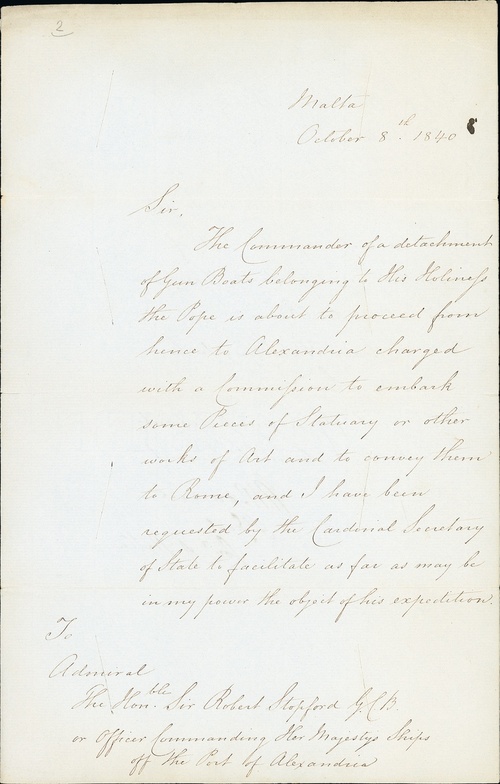 2
Malta
October 8th. 1840
Sir,
The Commander of a detachment
of Gun Boats belonging to His Holiness
the Pope is about to proceed from
hence to Alexandria charged
with a Commission to embark
some Pieces of Statuary or other
works of Art and to convey them
to Rome, and I have been
requested by the Cardinal Secretary
of State to facilitate as far as may be
in my power the object of his expedition.
To
Admiral
The Honble. Sir Robert Stopford G.C.B.
or Officer Commanding Her Majestys Ships
off the Port of Alexandria